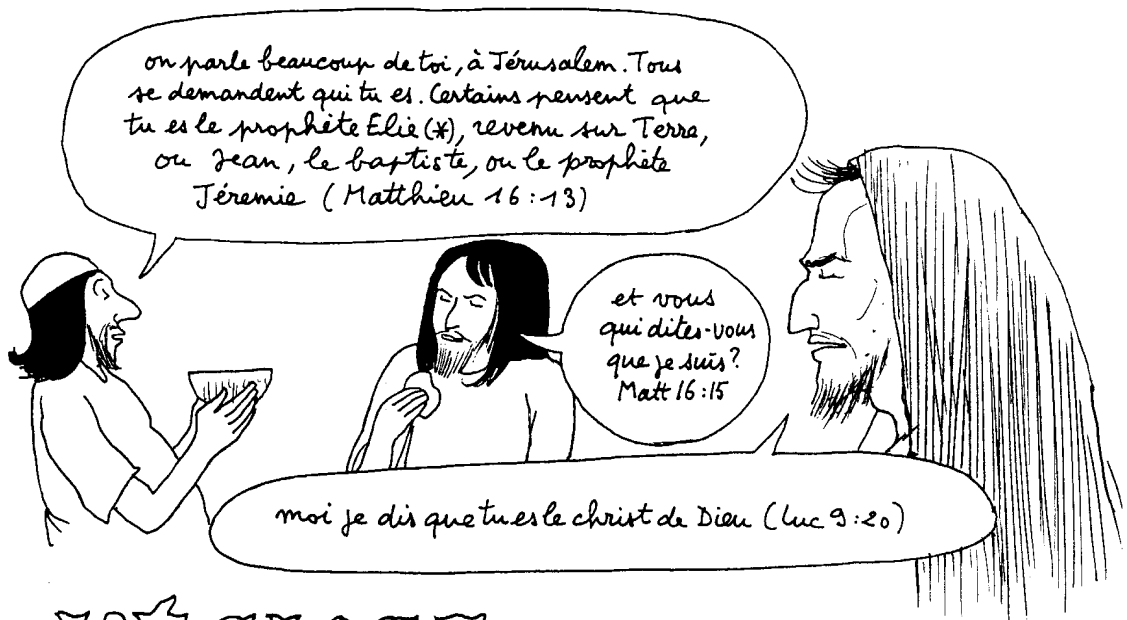 on parle beaucoup de toi, à Jérusalem. Tous
se demandent qui tu es. Certains pensent que
tu es le prophète Elie (*), revenu sur Terre,
ou Jean, le baptiste, ou le prophète
Jéremie (Matthieu 16:13)
et vous
qui dites-vous
que je suis?
Matt 16:15
moi je dis que tu es le christ de Dieu (Luc 9:20)